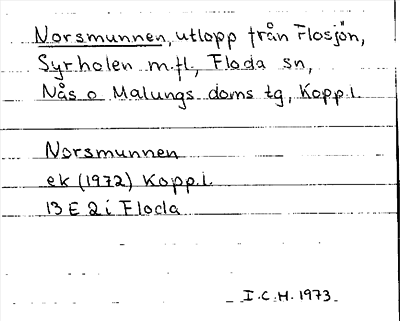 Norsmunnen, utlopp från Flosjön,
Syrholen m.fl., Floda sn,
Nås o Malungs doms tg, Kopp.l.
Norsmunnen
ek (1972) Kopp.l.
13 E 2 i Floda
I.C.H. 1973